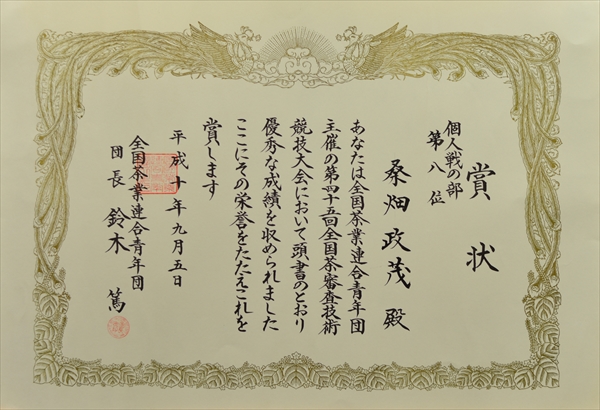 賞状
個人戦の部
第八位
桑畑政茂殿
あなたは全国茶業連合青年団
主催の第四十五回全国茶審査技術
競技大会において頭書のとおり
優秀な成績を収められました
ここにその栄誉をたたえこれを
賞します
平成十年九月五日
全国茶業連合青年団
団長 鈴木 篤